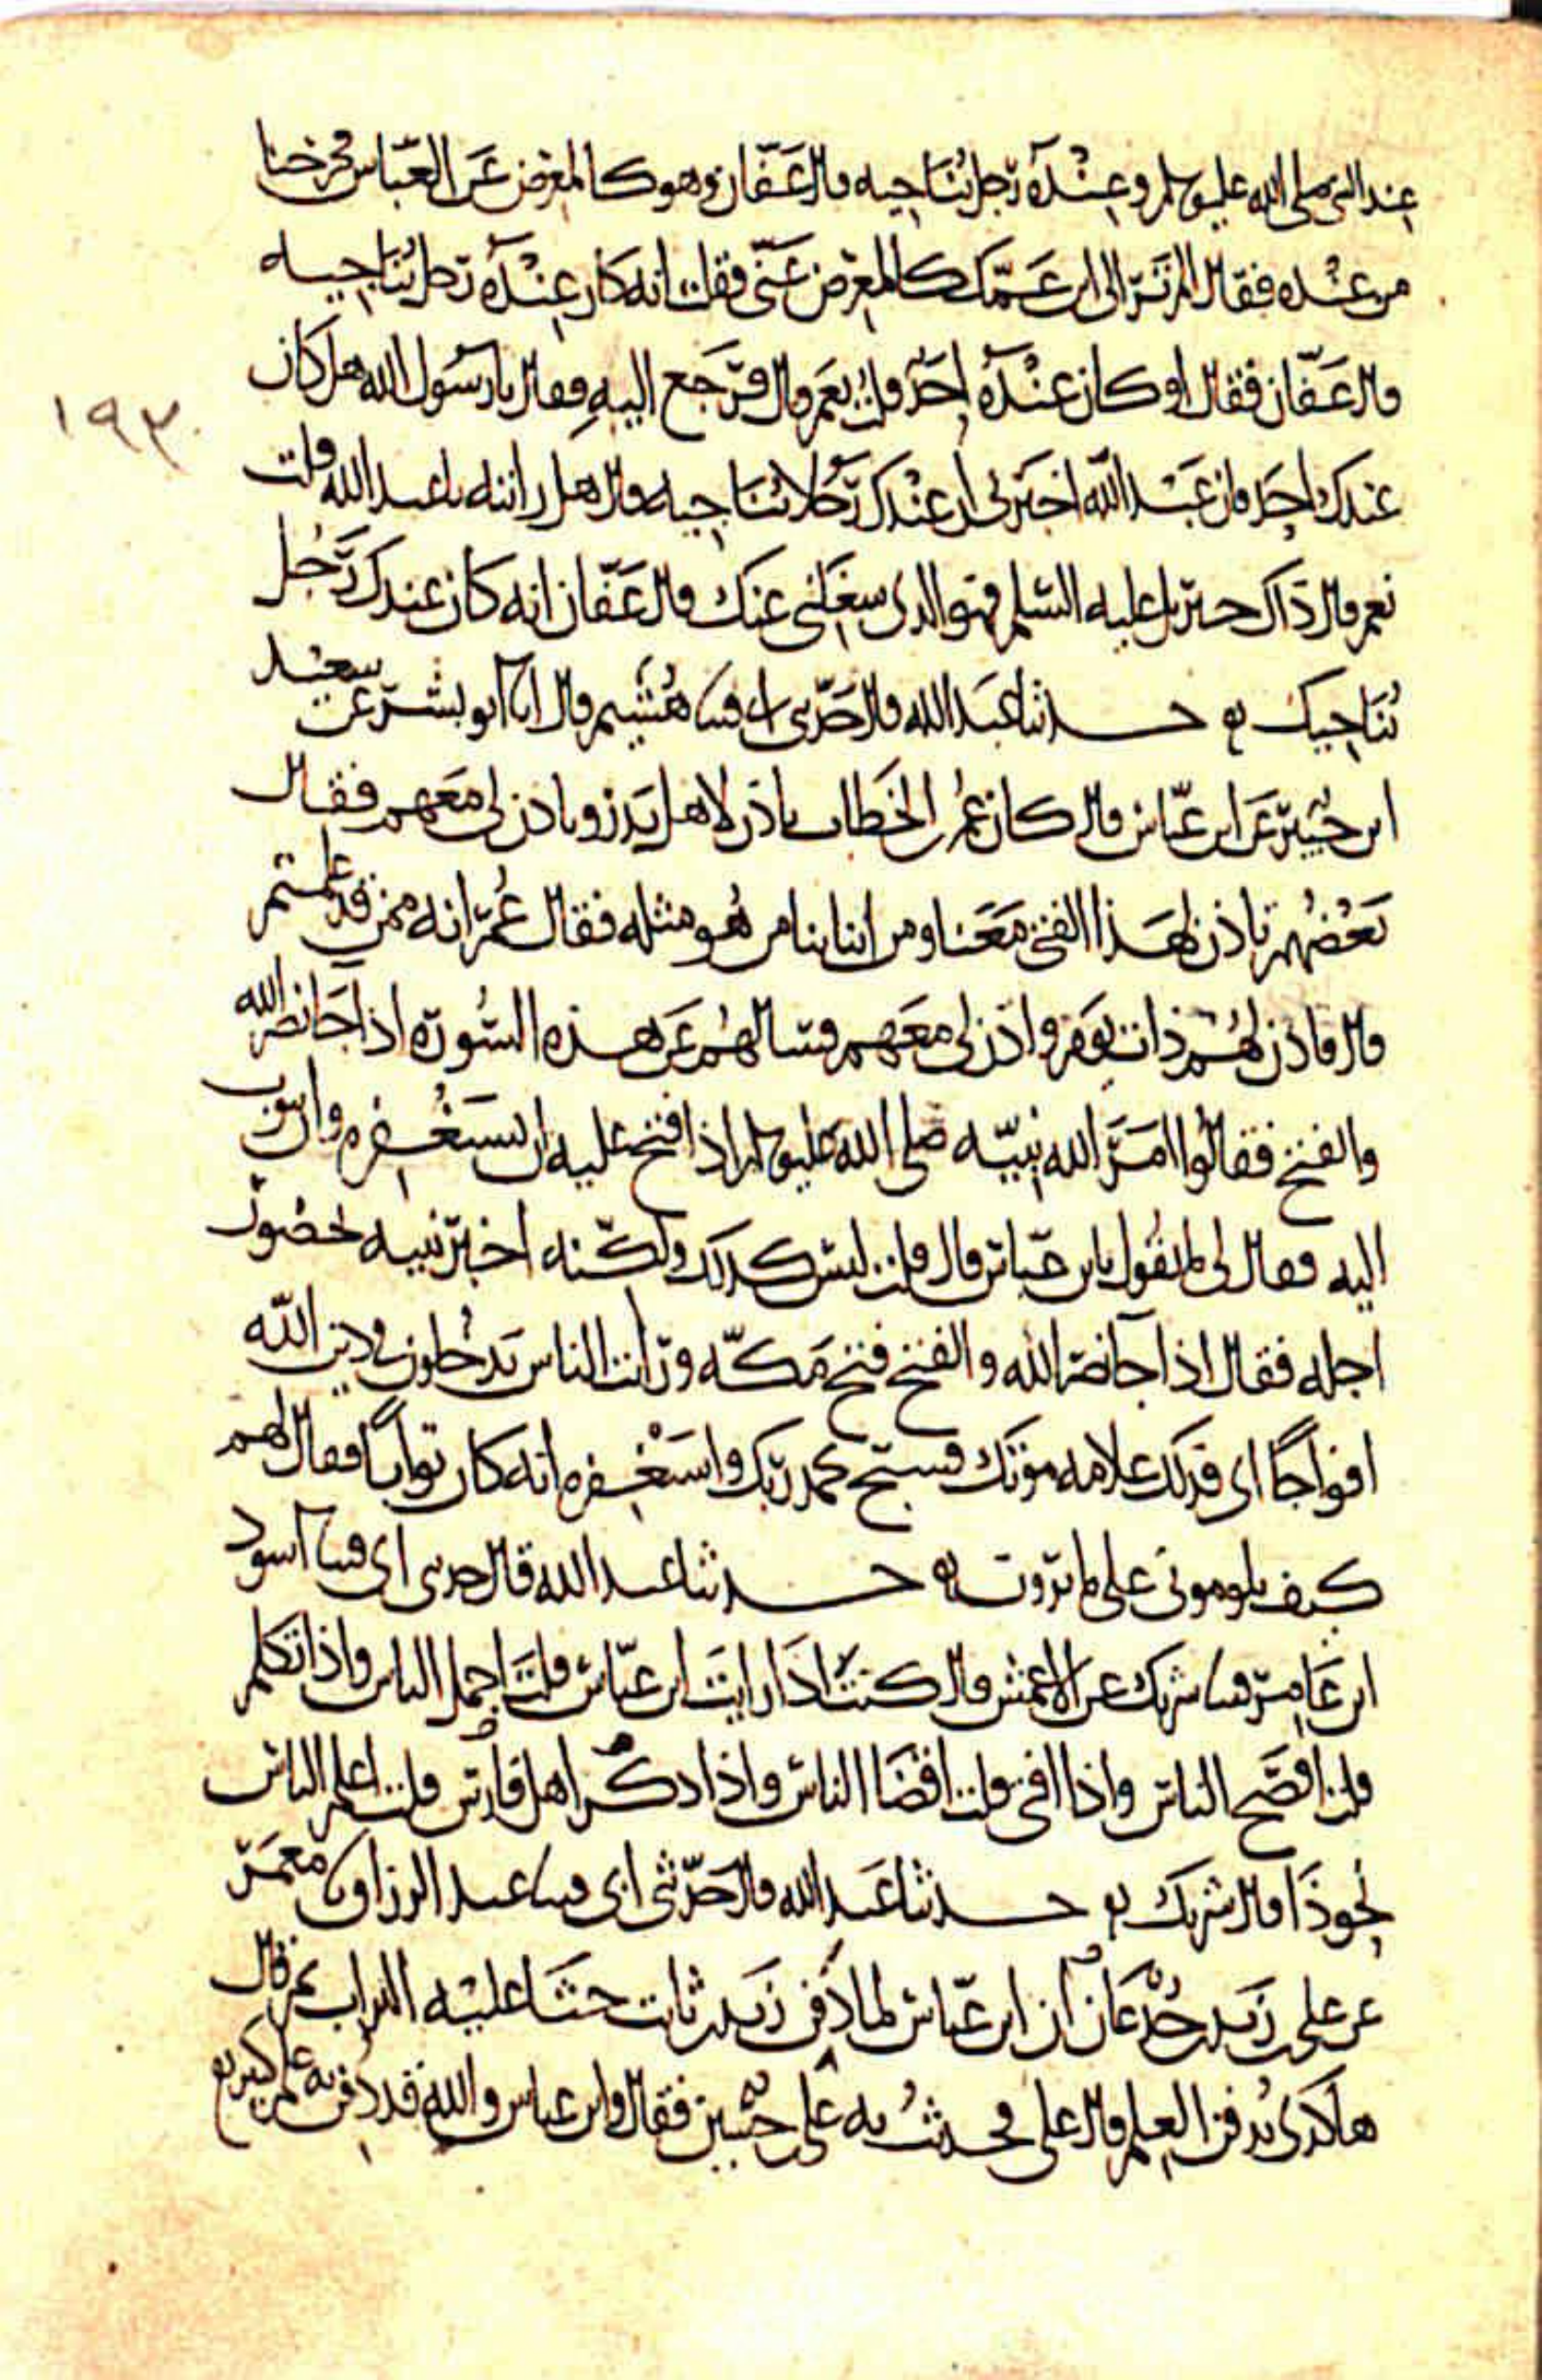 عند النبي صلى الله عليه وسلم وعنده رجل يناجيه قال عفان وهو كالمعرض عن العباس فخرجنا
من عنده فقال الم تر الى ابن عمك كالمعرض عني فقلت انه كان عنده رجل يناجيه
قال عفان فقال او كان عنده احد قلت نعم قال فرجع اليه فقال يا رسول الله هل كان
١٩٣
عندك احد فان عبد الله اخبرني ان عندك رجلا تناجيه قال هل رايته يا عبد الله قلت
نعم قال ذاك جبريل عليه السلم فهو الذي شغلني عنك قال عفان انه كان عندك رجل
يناجيك حدثنا عبد الله قال حدثني ابي قثنا هشيم قال انا ابو بشر عن سعيد
ابن جبير عن ابن عباس قال كان عمر بن الخطاب ياذن لاهل بدر وياذن لي معهم فقال
بعضهم تاذن لهذا الفتى معنا ومن ابنائنا من هو مثله فقال عمر انه ممن قد علمتم
قال فاذن لهم ذات يوم واذن لي معهم فسالهم عن هذه السورة اذا جا نصر الله
والفتح فقالوا امر الله نبيه صلى الله عليه وسلم اذا فتح عليه ان يستغفره وان يتوب
اليه فقال لي ما تقول يا بن عباس قال قلت ليس كذلك ولكنه اخبر نبيه بحضور
اجله فقال اذا جا نصر الله والفتح فتح مكة ورايت الناس يدخلون في دين الله
افواجا اي فذلك علامة موتك فسبح بحمد ربك واستغفره انه كان توابا فقال لهم
كيف تلوموني على ما ترون حدثنا عبد الله قال حدثني ابي قثنا اسود
ابن عامر قثنا شريك عن الاعمش قال كنت اذا رايت ابن عباس قلت اجمل الناس واذا تكلم
قلت افصح الناس واذا افتى قلت اقضا الناس واذا ذكر اهل فارس قلت اعلم الناس
نحو ذا قال شريك حدثنا عبد الله قال حدثني ابي قثنا عبد الرزاق نا معمر
عن علي بن زيد بن جدعان ان ابن عباس لما دفن زيد بن ثابت حثا عليه التراب ثم قال
هاكذى يدفن العلم قال علي فحدثت به علي بن حسين فقال وابن عباس والله قد دفن به علم كثير